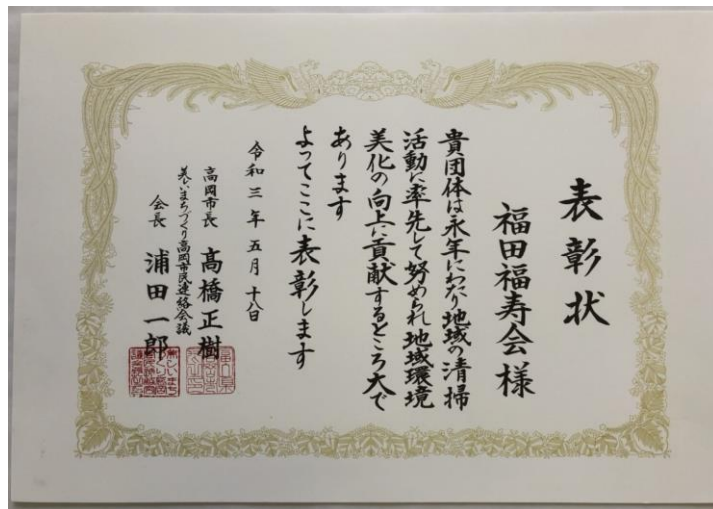 表彰状
福田福寿会様
貴団体は永年にわたり地域の清掃
活動に率先して努められ地域環境
美化の向上に貢献するところ大で
あります
よってここに表彰します
令和三年五月十八日
高岡市長 髙橋正樹
美しいまちづくり高岡市民連絡会議
会長 浦田一郎